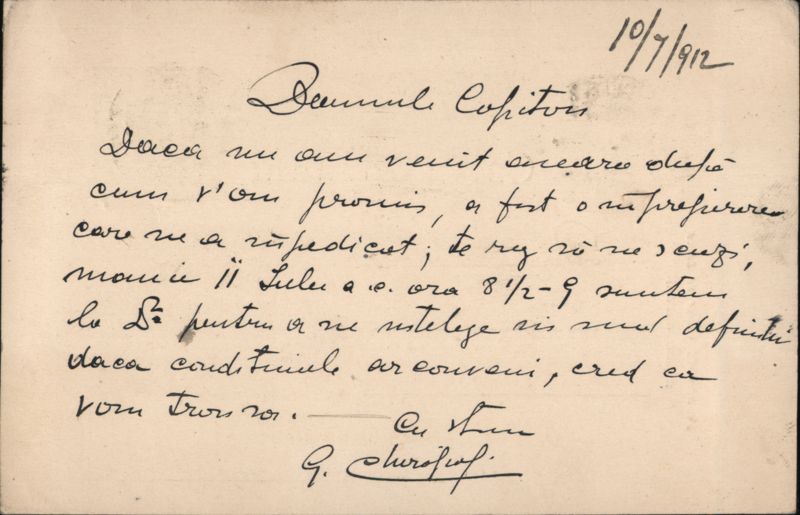 10/7/912
Domnule Capitan
Daca nu am venit aseara după
cum v'am promis, a fost o împrejurare
care ne a împedicat; te rog să ne scuzi,
maine 11 Iulie a.c. ora 8 1/2-9 suntem
la D-ta pentru a ne intelege în mod definitiv
daca conditiunile ar conveni, cred ca
vom
Cu stima
G.